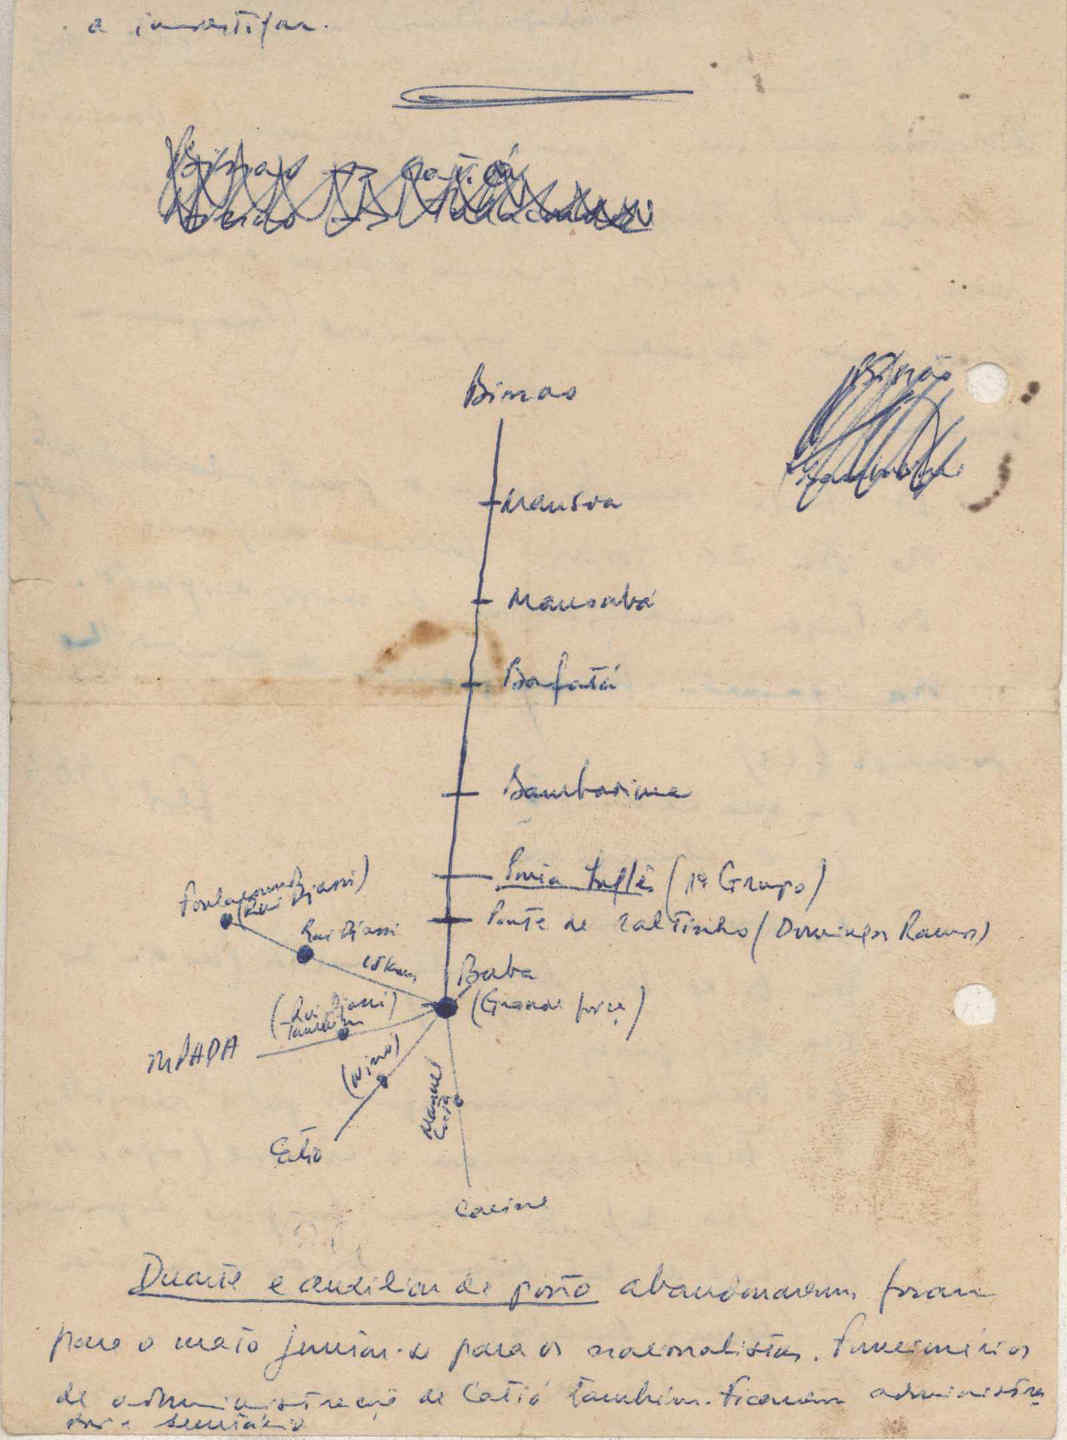 a investigar.
Bissao
Mansoa
Mansabá
Bafatá
Bambadinca
(1º Grupo)
Ponte de Saltinho (Domingos Ramos)
Rui Djassi
(Rui Djassi)
15 Km
Buba
(Grande força)
(Rui Djassi)
MPADA
(Nino)
Manuel
Catió
Cacine
Duarte e auxiliar de posto abandonaram, foram
para o mato juntar-se para os nacionalistas. Funcionários
de administração de Catió também. Ficaram administra
dor e secretário